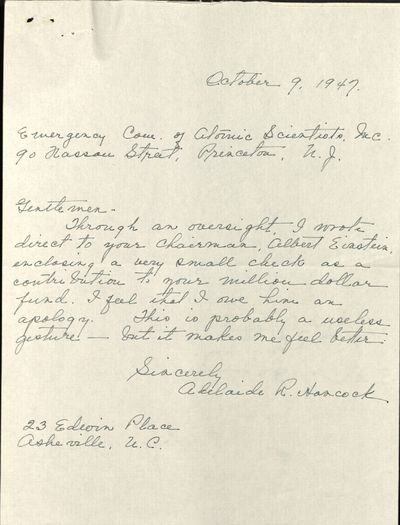 October 9, 1947.
Emergency Com. of Atomic Scientists, Inc.
90 Nassau Street, Princeton, N.J.
Gentlemen -
Through an oversight, I wrote
direct to your chairman, Albert Einstein,
enclosing a very small check as a
contribution to your million dollar
fund. I feel that I owe him an
apology. This is probably a useless
gesture — but it makes me feel better.
Sincerely
Adelaide R. Hancock
23 Edwin Place
Asheville, N.C.